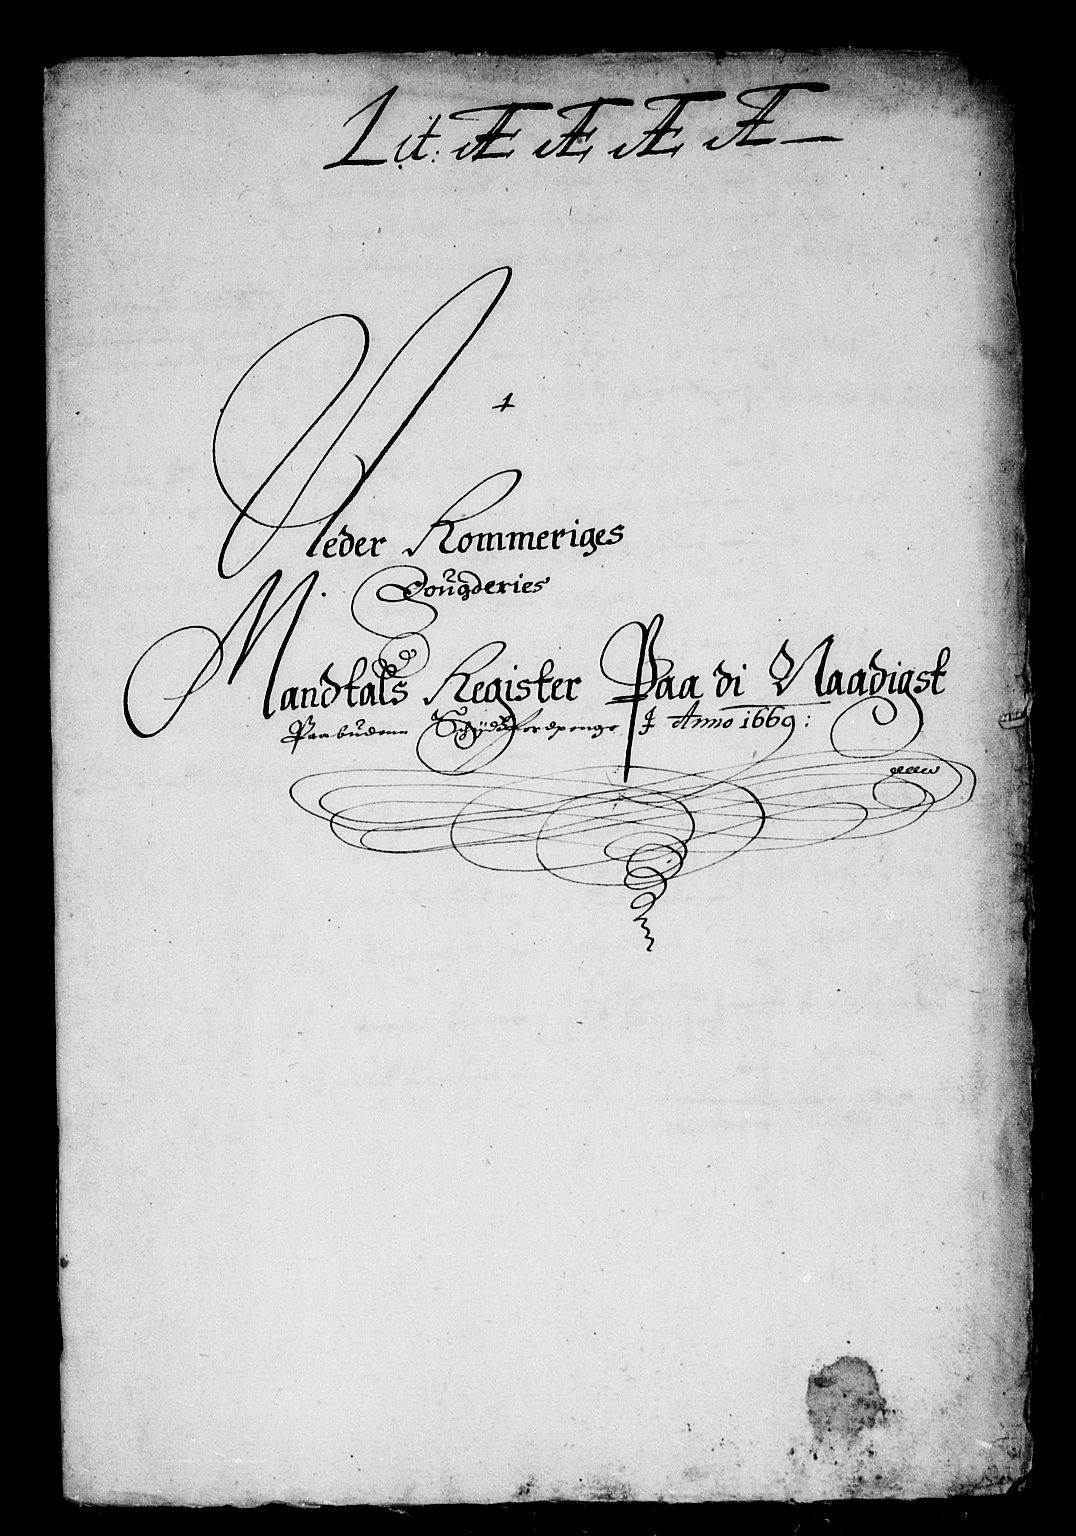 Lit: Æ Æ Æ Æ
Neder Rommeriges
Fougderies
Mandtals Register Paa di Naadigst
Paabudenn Schydtzferdpenge I Anno 1669: